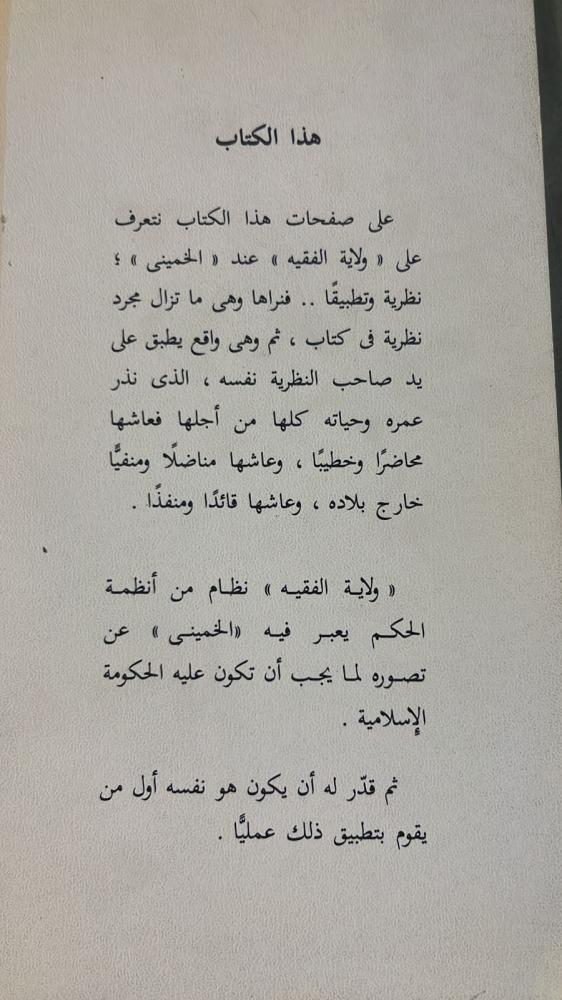 هذا الكتاب
على صفحات هذا الكتاب نتعرف
على « ولاية الفقيه » عند « الخمينى » ؛
نظرية وتطبيقًا .. فنراها وهى ما تزال مجرد
نظرية فى كتاب ، ثم وهى واقع يطبق على
يد صاحب النظرية نفسه ، الذى نذر
عمره وحياته كلها من أجلها فعاشها
محاضرًا وخطيبًا ، وعاشها مناضلًا ومنفيًّا
خارج بلاده ، وعاشها قائدًا ومنفذًا .
« ولاية الفقيه » نظام من أنظمة
الحكم يعبر فيه «الخمينى » عن
تصوره لما يجب أن تكون عليه الحكومة
الإسلامية .
ثم قدّر له أن يكون هو نفسه أول من
يقوم بتطبيق ذلك عمليًّا .